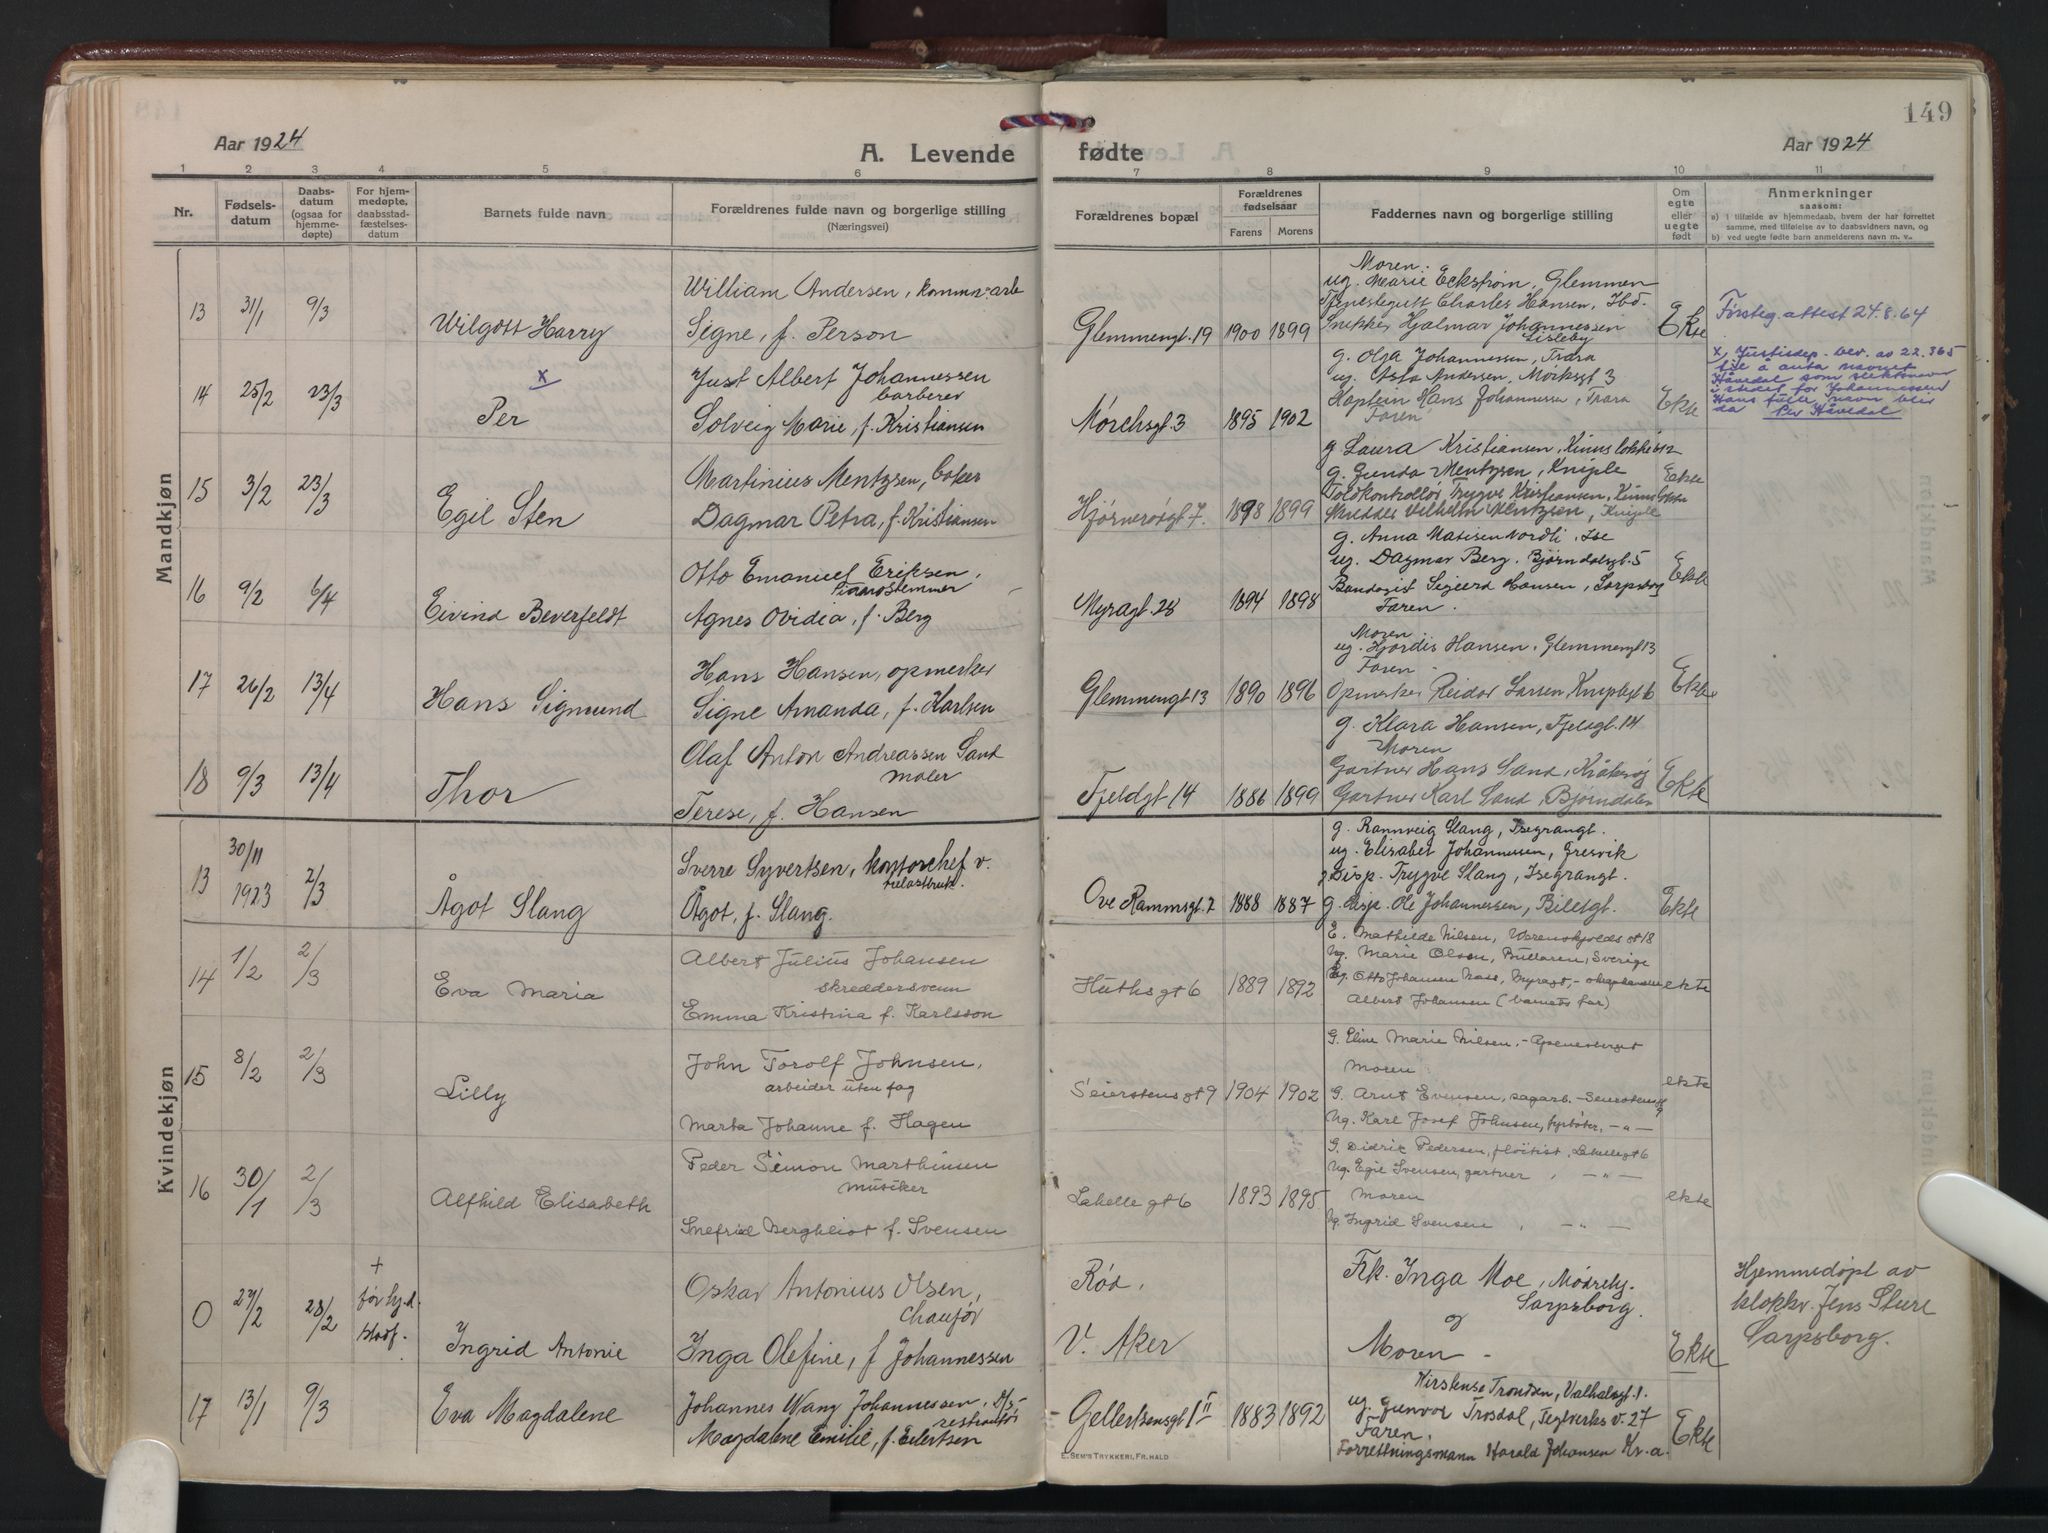 149
Aar 1924
A. Levende
fødte
Aar 1924
1 2 3 4 5 6 7 8 9 10 11
Nr.
Fødselsdatum
Daabsdatum (ogsaa for hjemmedøpte)
For hjemmedøpte, daabsstadfæstelsesdatum
Barnets fulde navn
Forældrenes fulde navn og borgerlige stilling
(Næringsvei)
Forældrenes bopæl
Forældrenes fødselsaar
Farens Morens
Faddernes navn og borgerlige stilling
Om egte eller uegte født
Anmerkninger
saasom:
a) i tilfælde av hjemmedaab, hvem der har forrettet samme, med tilføielse av to daabsvidners navn, og
b) ved uegte fødte barn anmelderens navn m. v.
Mandkjøn
13 31/1 9/3 Wilgott Harry
William Andersen, komm.arb
Signe, f. Person
Glemmengt. 19 1900 1899
Moren.
ug. Marie Eckstrøm, Glemmen
Tjenestegutt Charles Hansen, Ibd.
Snekker Hjalmar Johannessen
Lisleby
Ekte
Førsteg. attest 24.8.64
14 25/2 23/3 x Per
Just Albert Johannessen
barberer
Solveig Marie, f. Kristiansen
Mørchsgt. 3 1895 1902
g. Olga Johannessen, Trara
ug. Asta Andersen, Mørksgt 3
Kaptein Hans Johannessen, Trara
Faren
Ekte
x Justisdep. bev. av 22.3.65
til å anta navnet
Håvedal som slektsnavn
i stedet for Johannessen
Hans fulle navn blir
da Per Håvedal
15 3/2 23/3 Egil Sten
Martinius Mentzsen, baker
Dagmar Petra, f. Kristiansen
Hjørnerødgt 7. 1898 1899
g. Laura Kristiansen,
g. Gunda Mentzsen, Kniple
Toldkontrollør Trygve Kristiansen,
Skredder Vilhelm Mentzsen, Kniple
Ekte
16 9/2 6/4 Eivind Beverfeldt
Otto Emanuel Eriksen,
Pianostemmer
Agnes Ovidia, f. Berg
Myragt. 28 1894 1898
g. Anna Matisen Nordli, Ise
ug. Dagmar Berg, Bjørndalsgt. 5
Bandagist Sigurd Hansen, Sarpsborg
Faren.
Ekte
17 26/2 13/4 Hans Sigmund
Hans Hansen, opmerker
Signe Amanda, f. Karlsen
Glemmengt 13 1890 1896
Moren
ug. Hjørdis Hansen, Glemmengt 13
Faren
Opmerker Reidar Larsen Kniplegt 6
Ekte
18 9/3 13/4 Thor
Olaf Anton Andreassen Sand
maler
Terese, f. Hansen
Fjeldgt 14 1886 1899
g. Klara Hansen, Fjeldgt. 14
Moren
Gartner Hans Sand, Kråkerøy
Gartner Karl Sand, Bjørndalen
Ekte
Kvindekjøn
13 30/11 1923 2/3 Ågot Slang
Sverre Syvertsen, kontorchef v.
Ågot, f. Slang.
Ove Rammsgt. 7 1888 1887
g. Rannveig Slang, Isegrangt.
ug. Elisabet Johannessen, Gresvik
Disp. Trygve Slang, Isegrangt.
g. disp. Ole Johannessen, Biletgt.
Ekte
14 1/2 2/3 Eva Maria
Albert Julius Johansen
skreddersvenn
Emma Kristina f. Karlsson
Huths gt 6 1889 1892
E. Mathilde Nilsen, Werenskjolds gt 18
Ug. Marie Olsen, Bullaren, Sverige
Otto Johansen Nass, Myragt,
Albert Johansen (barnets far)
ekte
15 8/2 2/3 Lilly
John Torolf Johnsen,
arbeider uten fag
Marta Johanne f. Hagen
Seierstens gt 9 1904 1902
G. Eline Marie Nilsen, - Apenesberget
Moren
G. Arnt Evensen, sagarb. - Seierstensgt 9
Ug. Karl Josef Johnsen, fyrbøter, - " -
ekte
16 30/1 2/3 Alfhild Elisabeth
Peder Simon Marthinsen
musiker
Snefrid Bergljot f. Svensen
Labelle gt 6 1893 1895
G. Didrik Pedersen, fløitist, Labellegt 6
Ug. Egil Svensen, gartner, - " -
Moren
Ug. Ingrid Svensen, - " -
ekte
0 27/2 28/2 + før hj.d. stadf. Ingrid Antonie
Oskar Antonius Olsen,
Chaufør
Inga Olefine, f Johannessen
Rød,
V. Aker
Frk. Inga Moe,
Sarpsborg.
og
Moren -
Ekte
Hjemmedøpt av
klokkr. Jens Sture
Sarpsborg.
17 13/1 9/3 Eva Magdalene
Johannes Wang Johannessen,
Magdalene Emilie, f. Eilertsen
Gellertsensgt 1 II 1883 1892
Kirstense Trondsen, Valhalsgt. 1.
ug. Gunvor Trosdal, Teglverks v. 27
Faren.
Forretningsmann Harald Johansen Kr.a.
Ekte
E. SEM'S TRYKKERI, FR.HALD